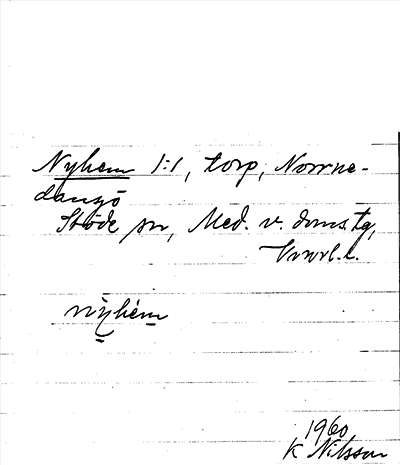 Nyhem 1:1, torp, Norrne-
dansjö
Stöde sn, Med. v. doms.tg,
Vnrl.l.
nyhém
1960
K Nilsson